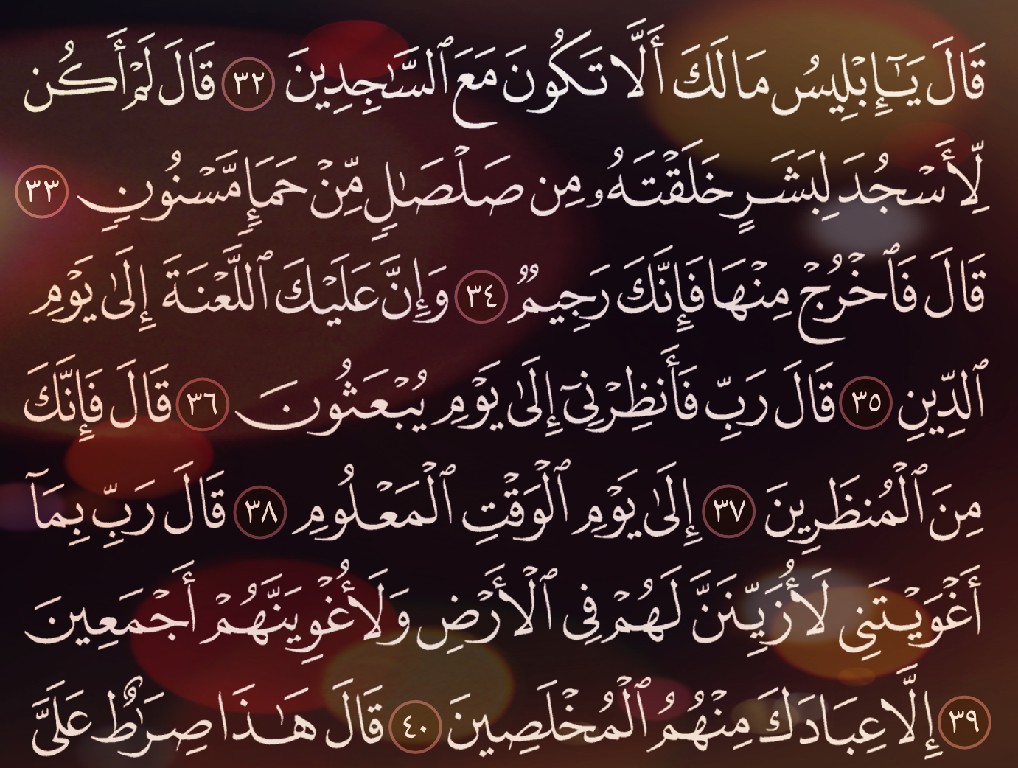 قَالَ يَـٰٓإِبْلِيسُ مَا لَكَ أَلَّا تَكُونَ مَعَ ٱلسَّـٰجِدِينَ ٣٢ قَالَ لَمْ أَكُن
لِّأَسْجُدَ لِبَشَرٍ خَلَقْتَهُۥ مِن صَلْصَـٰلٍ مِّنْ حَمَإٍ مَّسْنُونٍ ٣٣
قَالَ فَٱخْرُجْ مِنْهَا فَإِنَّكَ رَجِيمٌ ٣٤ وَإِنَّ عَلَيْكَ ٱللَّعْنَةَ إِلَىٰ يَوْمِ
ٱلدِّينِ ٣٥ قَالَ رَبِّ فَأَنظِرْنِىٓ إِلَىٰ يَوْمِ يُبْعَثُونَ ٣٦ قَالَ فَإِنَّكَ
مِنَ ٱلْمُنظَرِينَ ٣٧ إِلَىٰ يَوْمِ ٱلْوَقْتِ ٱلْمَعْلُومِ ٣٨ قَالَ رَبِّ بِمَآ
أَغْوَيْتَنِى لَأُزَيِّنَنَّ لَهُمْ فِى ٱلْأَرْضِ وَلَأُغْوِيَنَّهُمْ أَجْمَعِينَ
٣٩ إِلَّا عِبَادَكَ مِنْهُمُ ٱلْمُخْلَصِينَ ٤٠ قَالَ هَـٰذَا صِرَٰطٌ عَلَىَّ